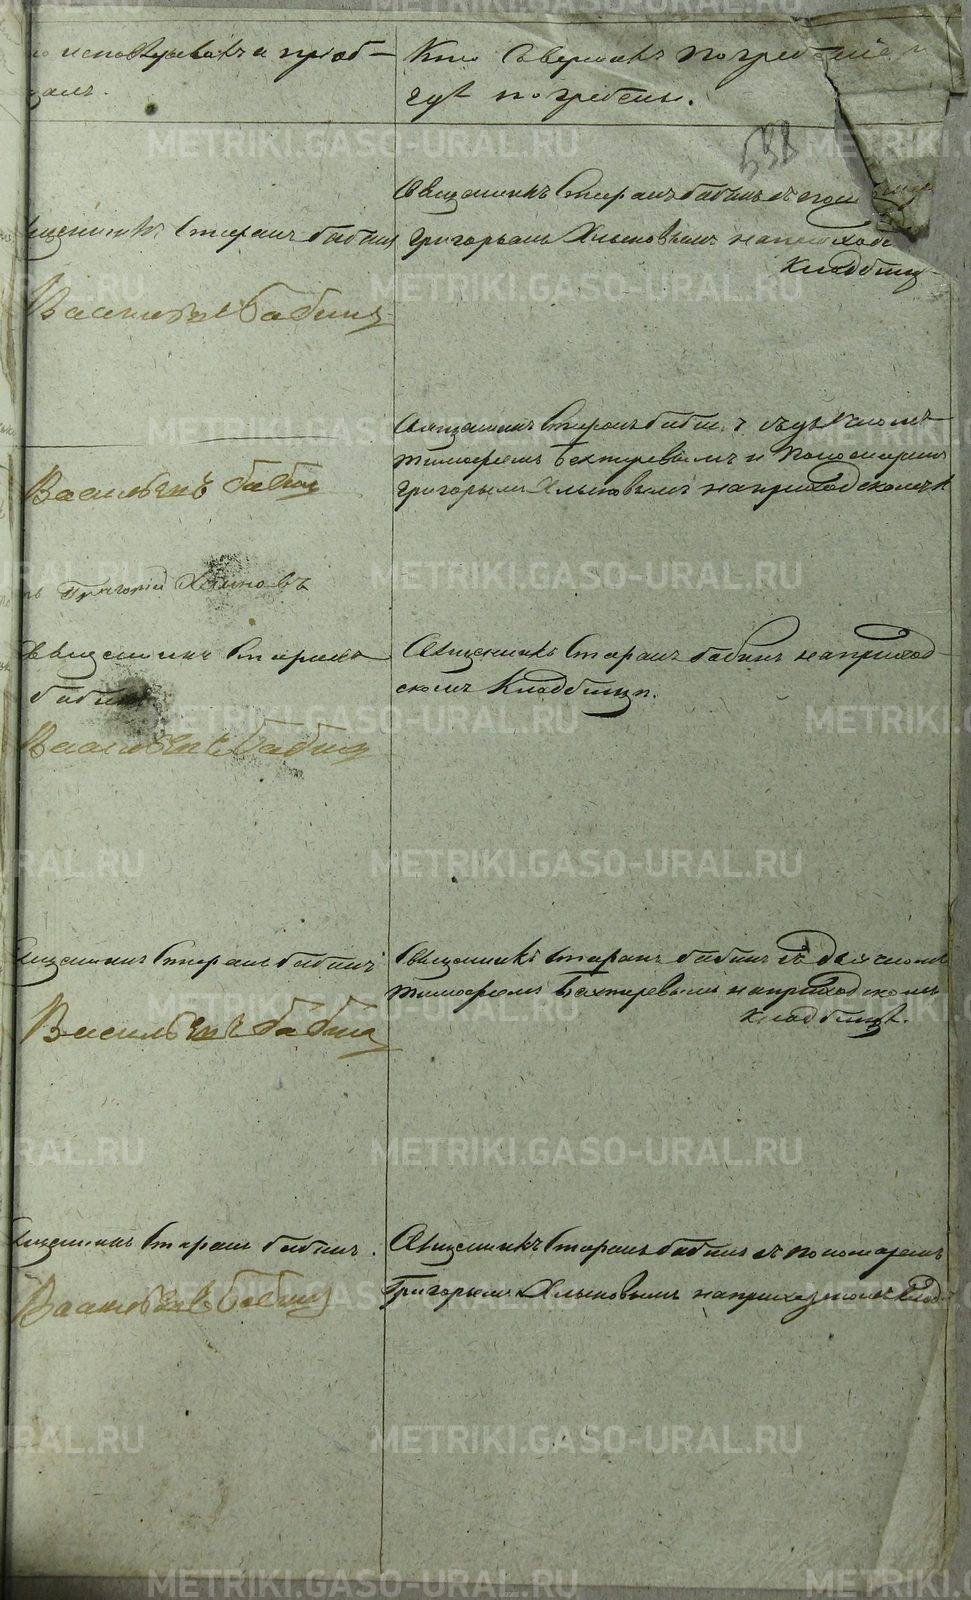 исповѣдывалъ и пріоб-
щалъ.
Кто совершалъ погребеніе и
гдѣ погребены.
538
Священникъ Стефанъ Бабинъ съ
Григорьемъ Хлыновымъ на приход
Кладбищѣ
Стефанъ Бабин
Васильевъ Бабинъ
Священникъ Стефанъ Бабинъ съ дьячкомъ
Тимофеемъ Бехтеревымъ и Пономаремъ
Григорьемъ Хлыновымъ на приходскомъ К
Васильевъ Бабин
Григорій Хлыновъ
Священникъ Стефанъ
Бабинъ
Васильевъ Бабинъ
Священникъ Стефанъ Бабинъ на приход-
скомъ Кладбищѣ.
Священникъ Стефанъ Бабинъ
Васильевъ Бабинъ
Священникъ Стефанъ Бабинъ съ дьячкомъ
Тимофеемъ Бехтеревымъ на приходскомъ
Кладбищѣ.
Священникъ Стефанъ Бабинъ.
Васильевъ Бабинъ
Священникъ Стефанъ Бабинъ съ пономаремъ
Григорьемъ Хлыновымъ на приходскомъ Клад-
METRIKI.GASO-URAL.RU